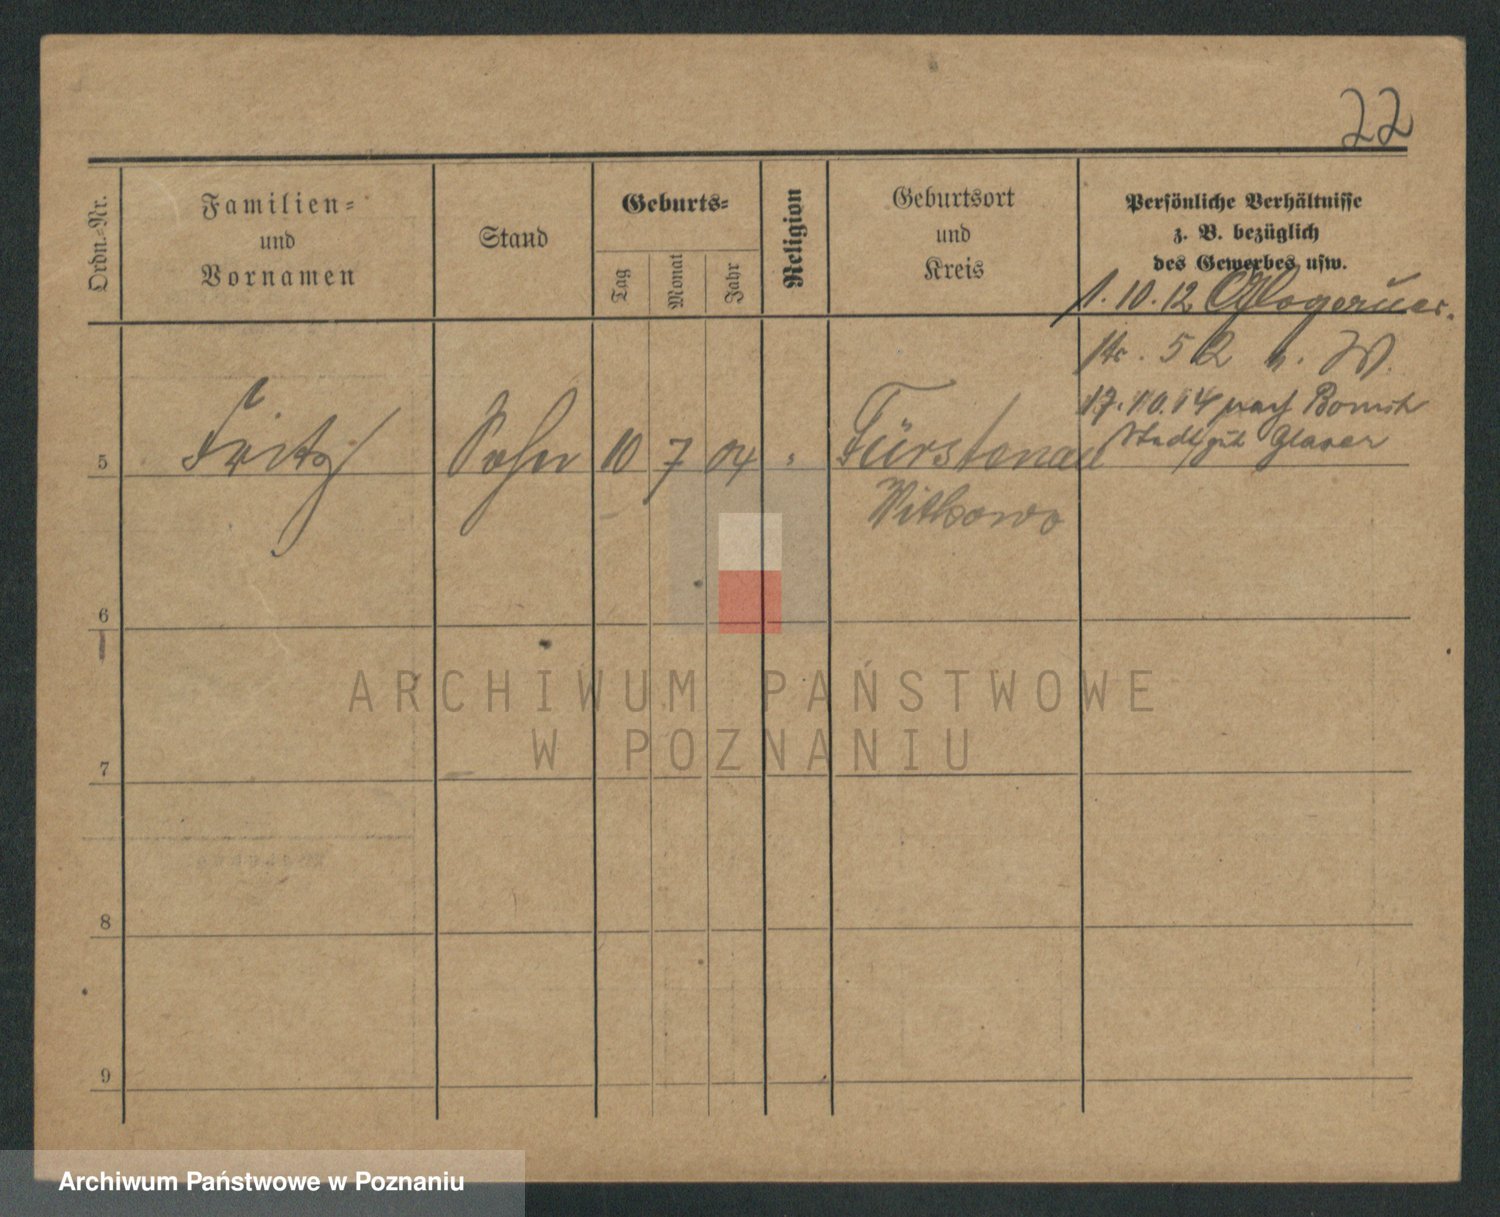 22
Ordn.-Nr.
Familien-
und
Vornamen
Stand
Geburts-
Tag
Monat
Jahr
Religion
Geburtsort
und
Kreis
Persönliche Verhältnisse
z. B. bezüglich
des Gewerbes usw.
1. 10. 12 Glogauer
Str. 52 b. W.
17. 10. 14 nach Bomst
5 Fritz Sohn 10 7 04 Fürstenau
Witkowo
6
7
8
9
ARCHIWUM PAŃSTWOWE
W POZNANIU
Archiwum Państwowe w Poznaniu